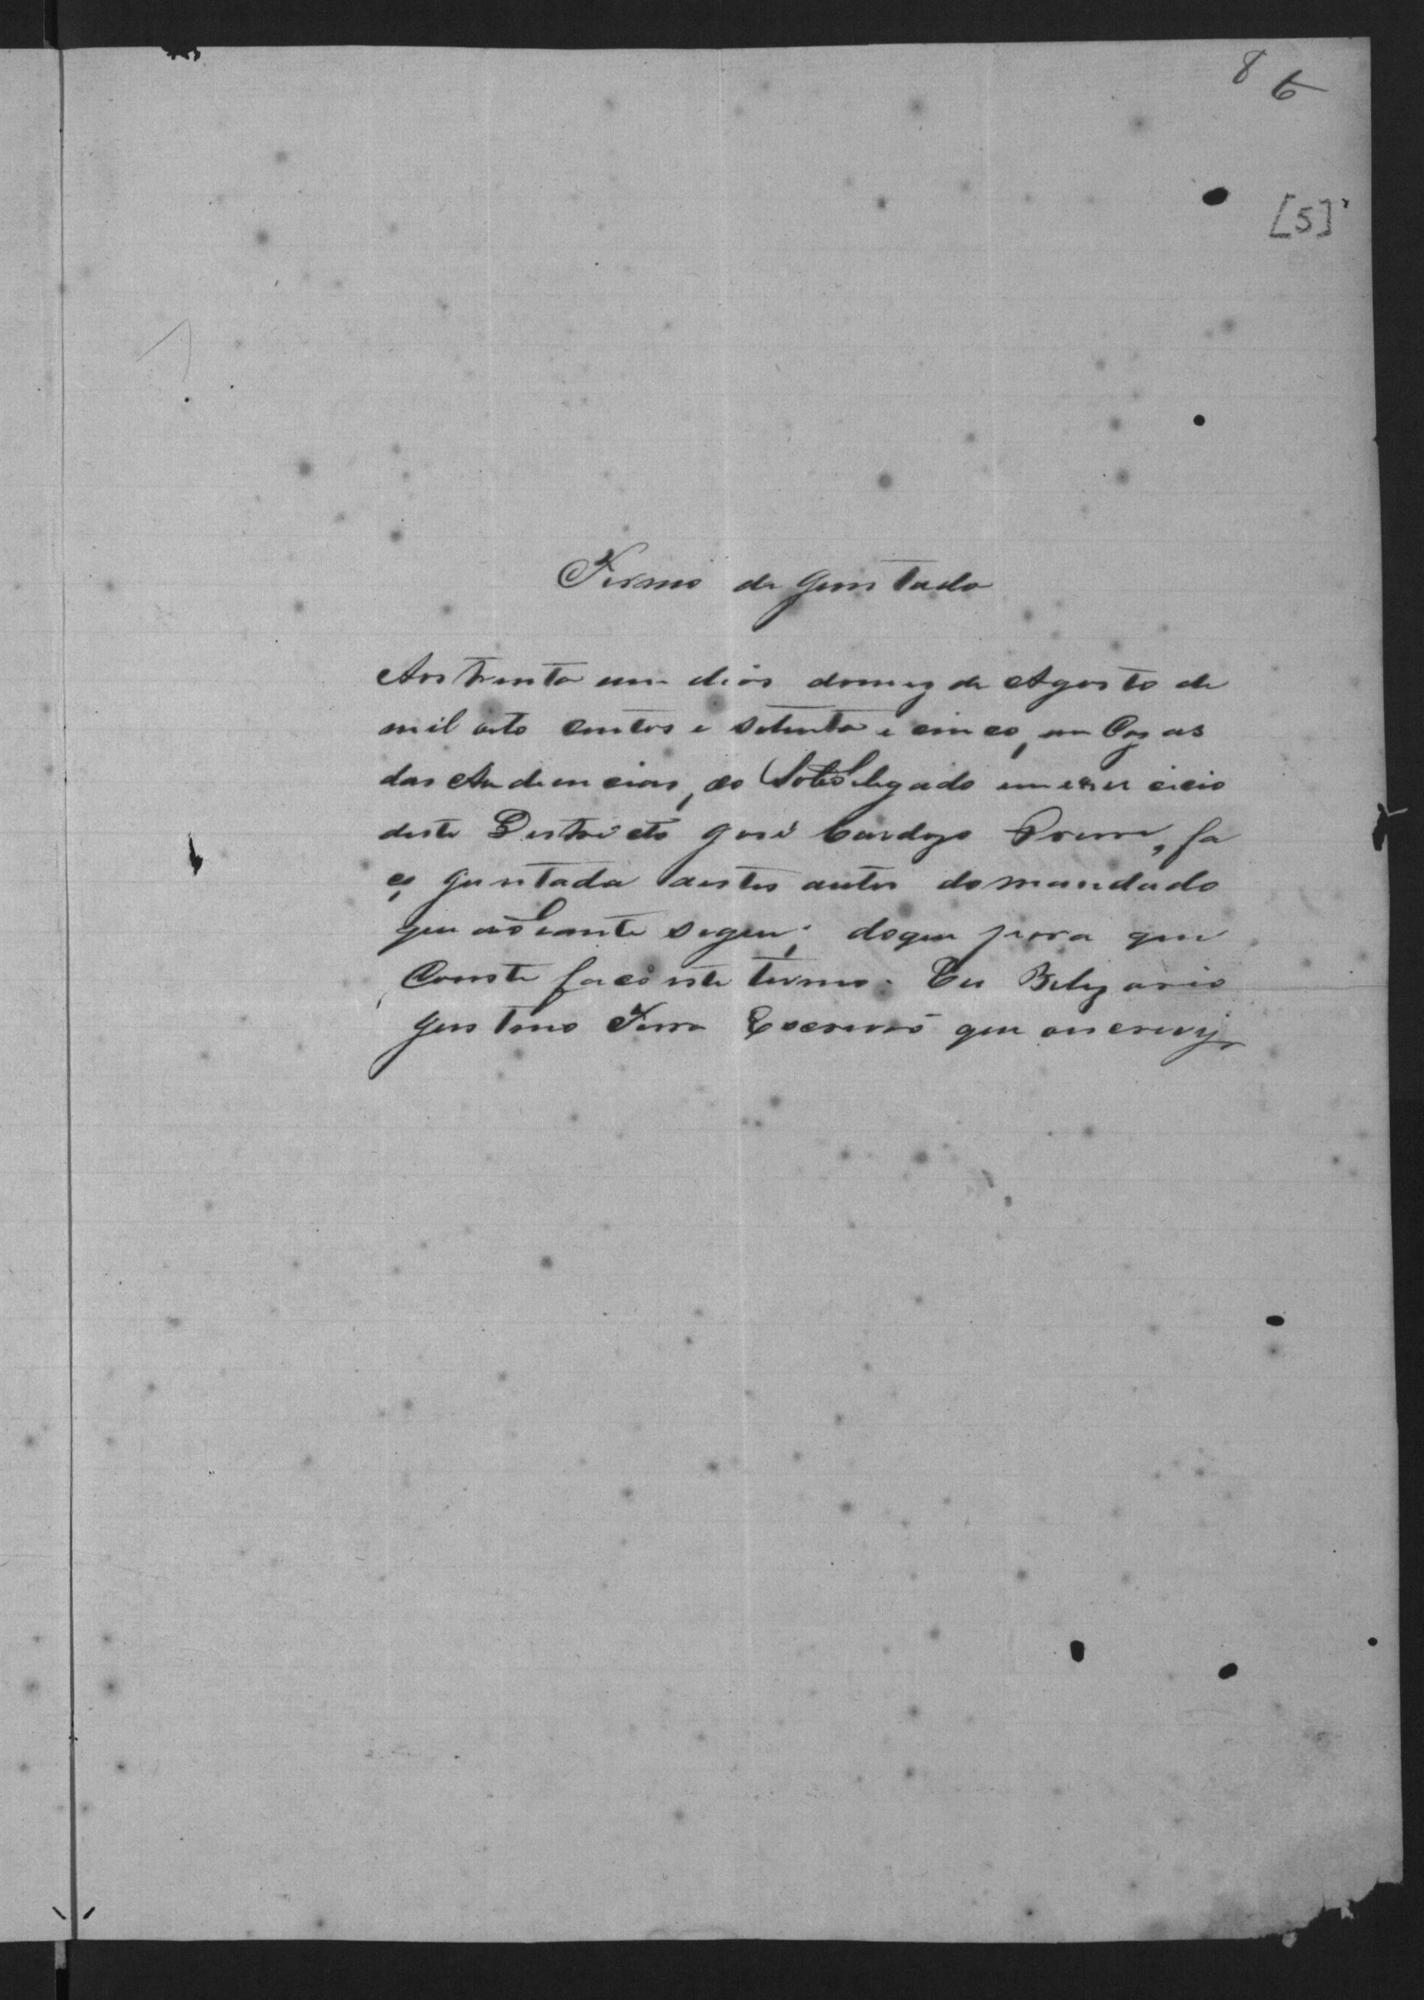 8 6
[5]
Termo de Juntada
Aos trenta um dias do mez de Agosto de
mil oito centos e setenta e cinco, em Cazas
das Audiencias, do Sobdelegado em exer cicio
deste Destricto José Cardozo, fa
ço Juntada aestes autos do mandado
que aodiante segue; do que para que
Conste faço este termo. Eu Belizario
Escrivaõ que oescrevy